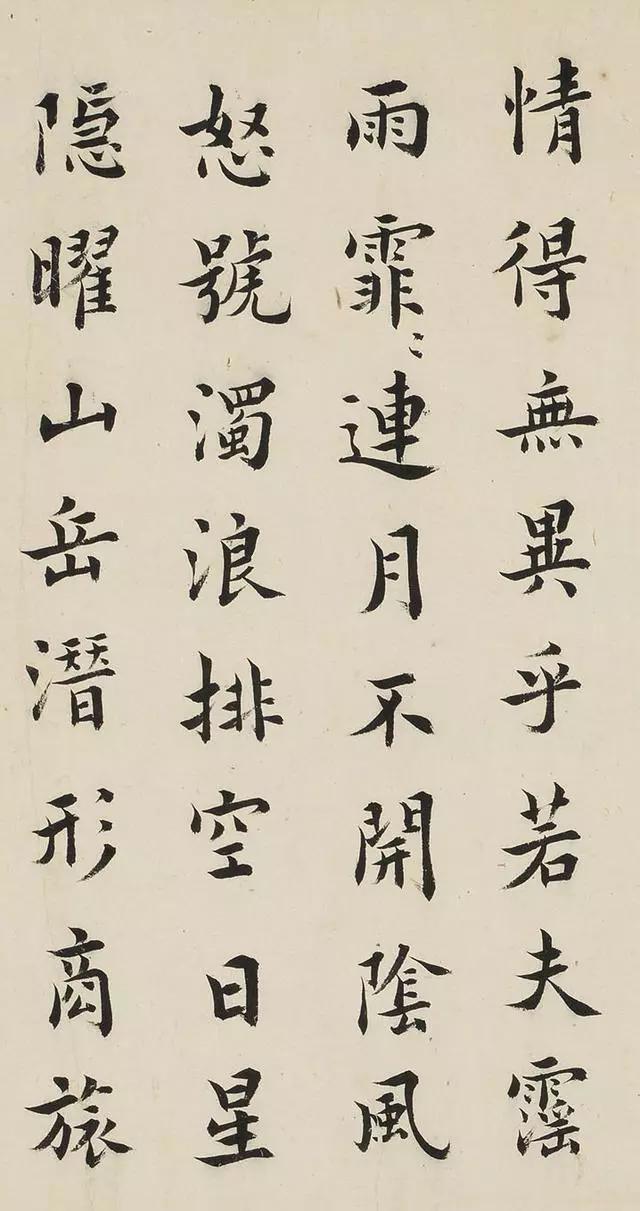 情得無異乎若夫霪
雨霏〻連月不開陰風
怒號濁浪排空日星
隐曜山岳潛形商旅